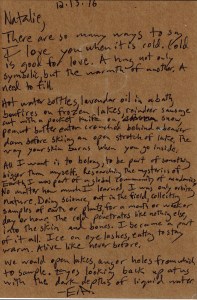 12.13.16
Natalie,
There are so many ways to say
I love you when it is cold. Cold
is good for love. A hug not only
symbolic, but the warmth of another. A
need to fill.
Hot water bottles, lavender oil in a bath,
bonfires on frozen lakes, reindeer sausage
cooked with a pocket knife on snow
peanut butter eaten crouched behind a beaver
dam before skiing the long stretch of lake. The
way your skin burns when you go inside.
All I want is to belong, to be part of something
bigger than myself. Researching the mysteries of
Earth
No matter how much I learned, I was only orbiting
nature. Doing science out in the field. Collecting
samples of earth or plants for a month or week or
day or hour. The cold penetrates like nothing else,
into the skin and bones. I become a part
of it all. Ice on eye lashes, eating to stay
warm. Alive like never before.
We would open lakes, auger holes from which
to sample. Eyes looking back up at us
with the dark depths of liquid water.